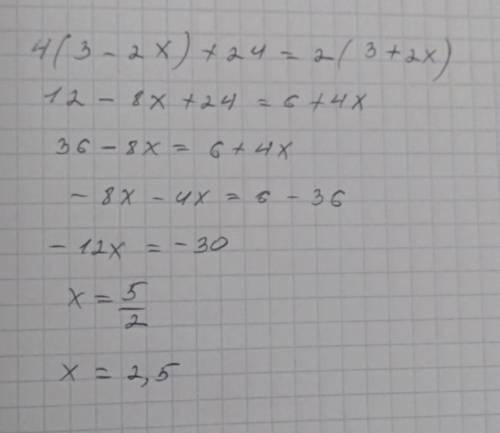 4(3 - 2x) + 24 = 2(3 + 2x)
12 - 8x + 24 = 6 + 4x
36 - 8x = 6 + 4x
- 8x - 4x = 6 - 36
- 12x = - 30
x = 5/2
x = 2,5